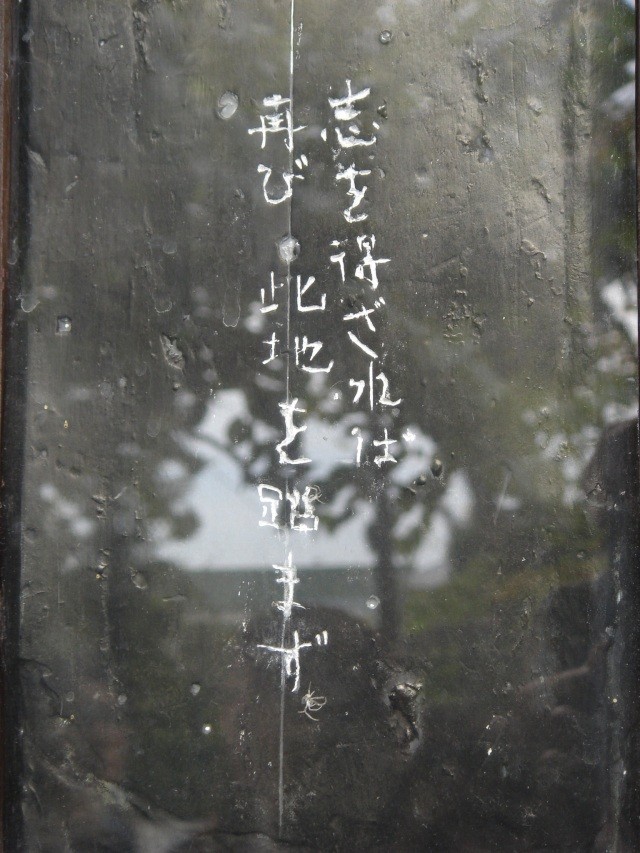 志を得ざれば
再び 此地を踏まず